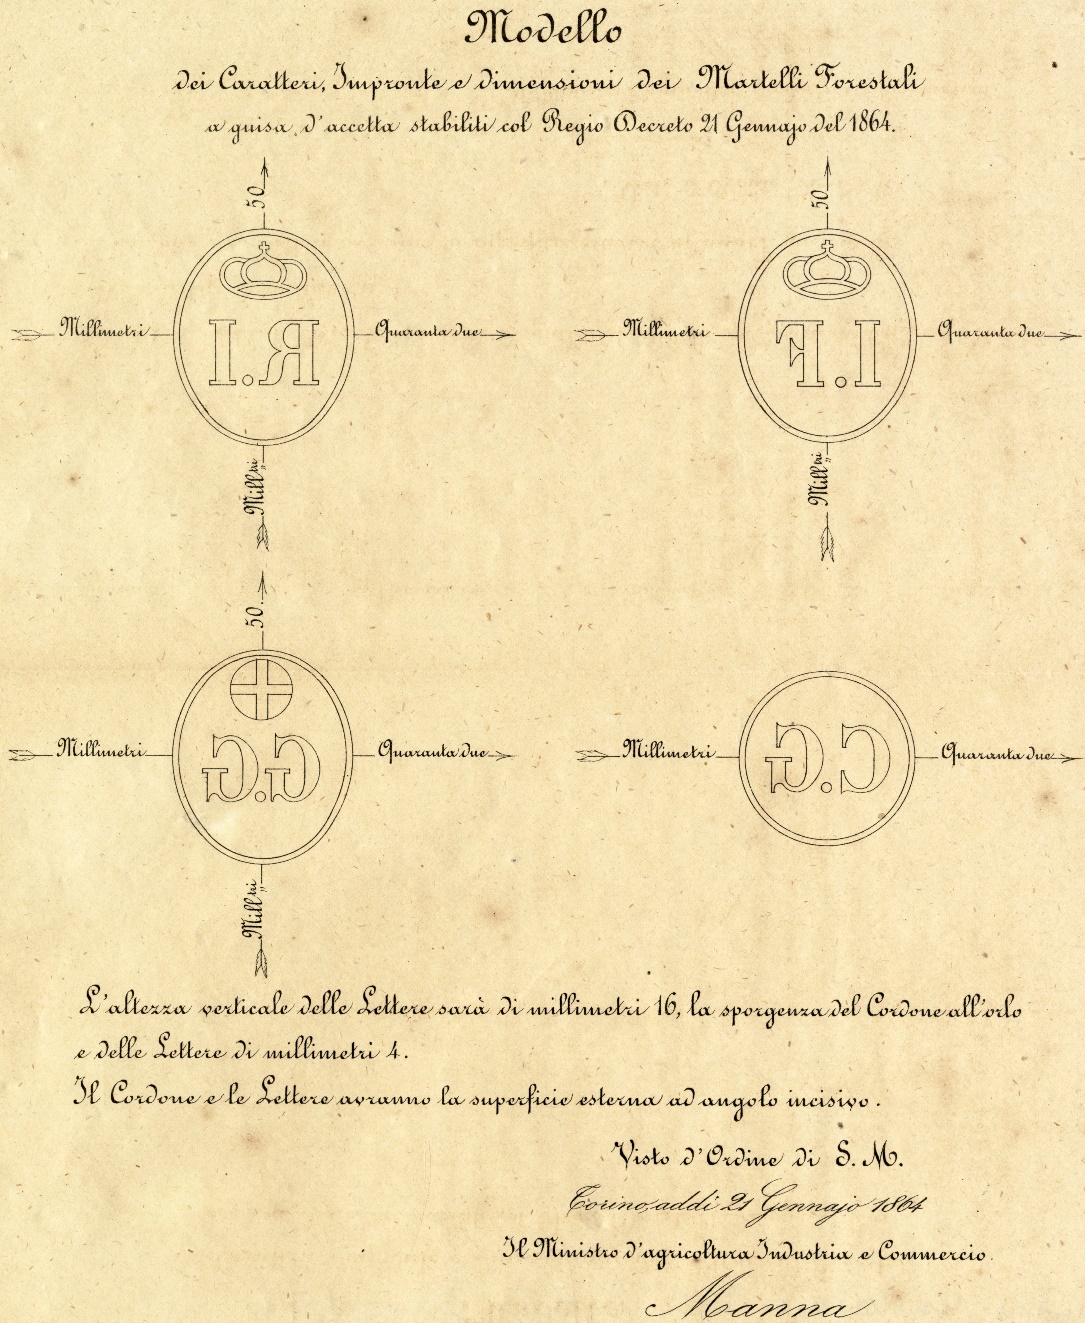 Modello
dei Caratteri, Impronte e dimensioni dei Martelli Forestali
a guisa d'accetta stabiliti col Regio Decreto 21 Gennajo del 1864.
50
Millimetri
R.I
Quaranta due
Mill.tri
50
Millimetri
I.F
Quaranta due
Mill.tri
50
Millimetri
G.G
Quaranta due
Mill.tri
Millimetri
C.G
Quaranta due
L'altezza verticale delle Lettere sarà di millimetri 16, la sporgenza del Cordone all'orlo
e delle Lettere di millimetri 4.
Il Cordone e le Lettere avranno la superficie esterna ad angolo incisivo.
Visto d'Ordine di S. M.
Torino, addì 21 Gennajo 1864
Il Ministro d'agricoltura Industria e Commercio.
Manna